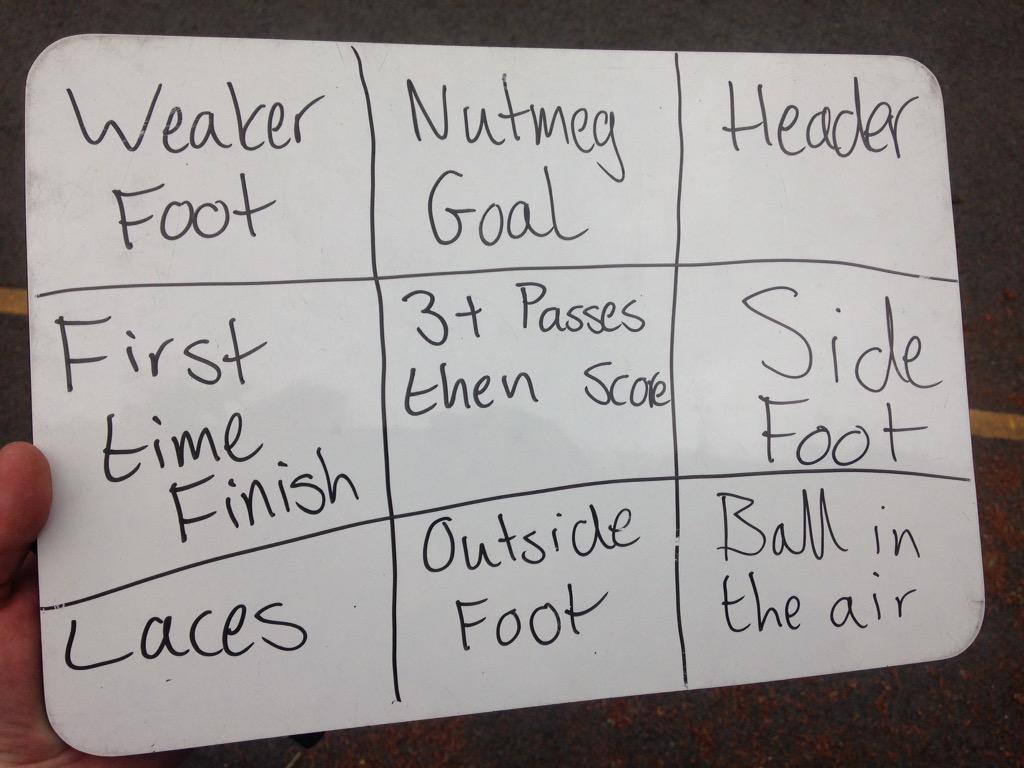 Weaker
Foot
Nutmeg
Goal
Header
First
time
Finish
3+ Passes
then Score
Side
Foot
Laces
Outside
Foot
Ball in
the air